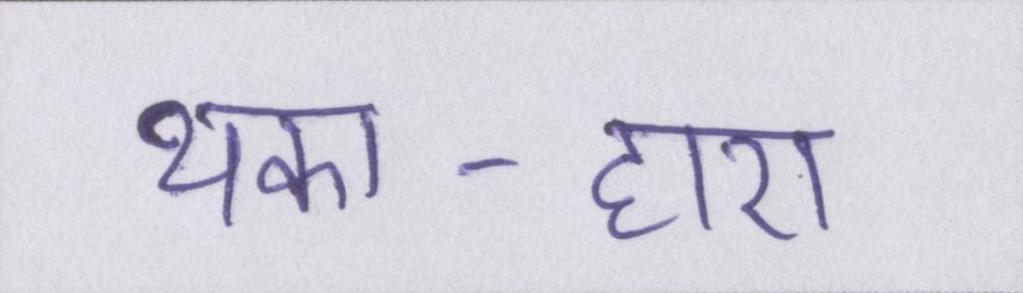 थका - हारा